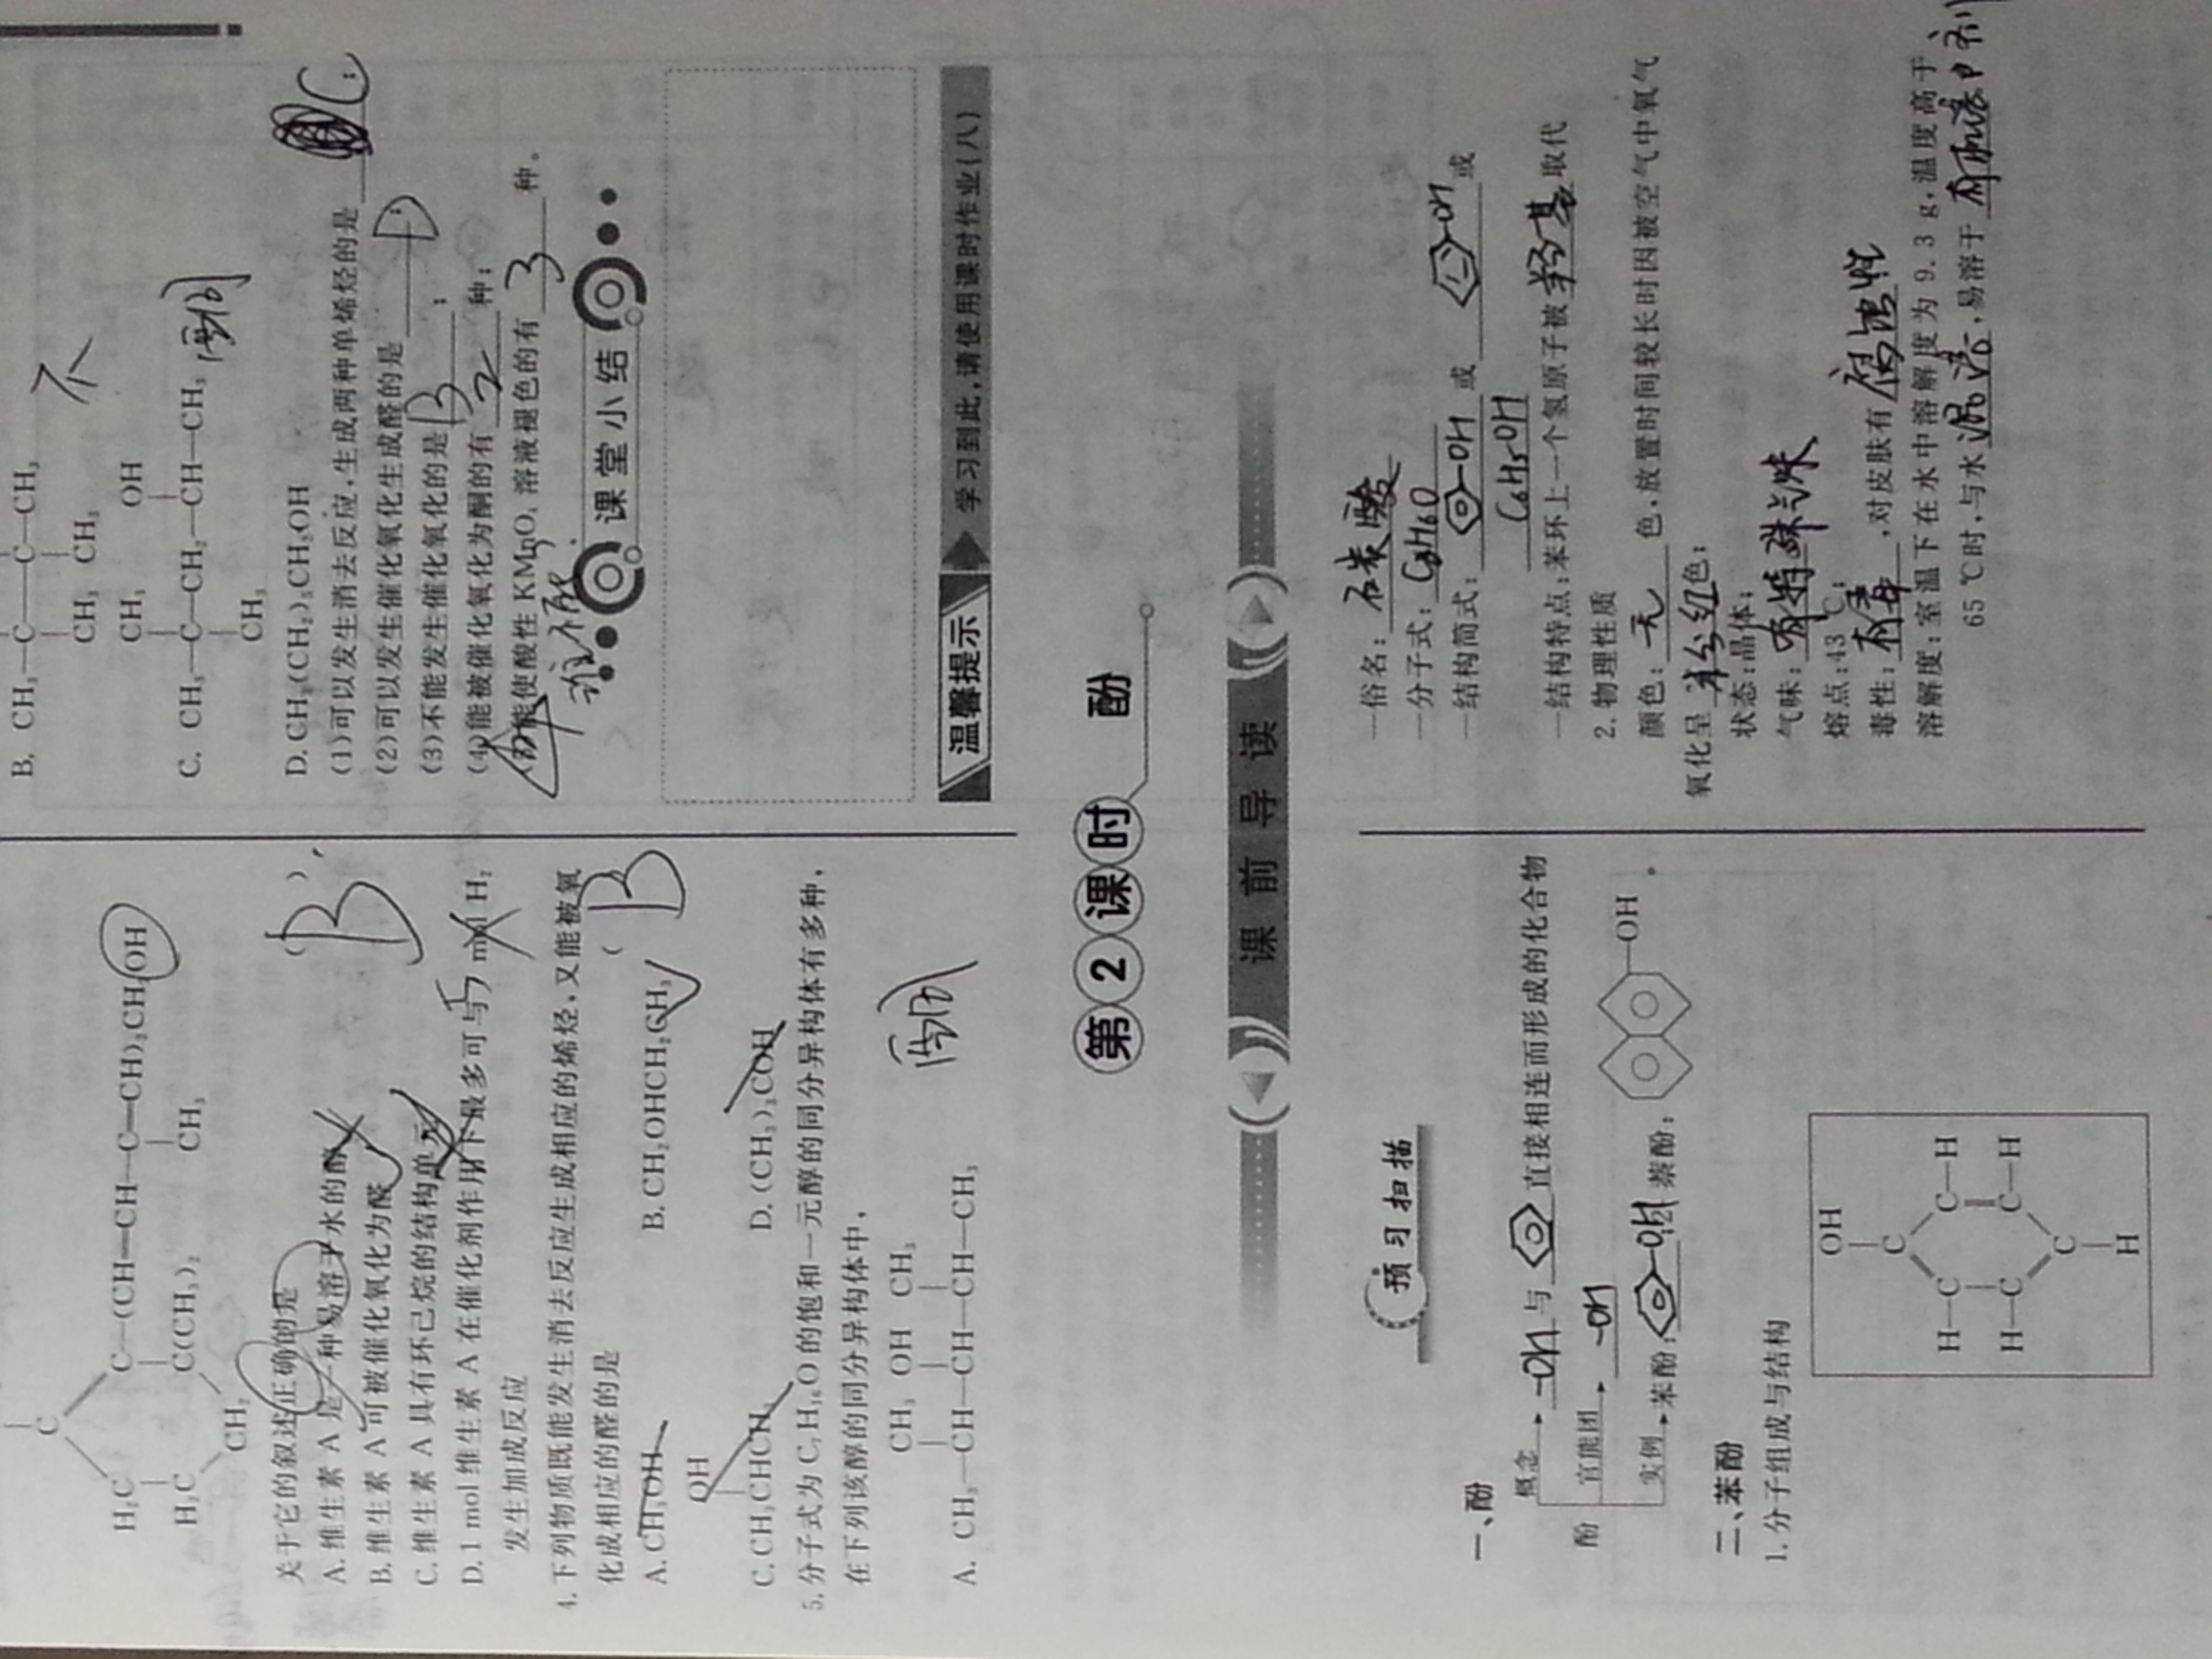 C
H₂C C—(CH═CH—C═CH)₂CH₂OH
H₂C C(CH₃)₂ CH₃
CH₂
关于它的叙述正确的是 ( B )
A.维生素 A 是一种易溶于水的醇
B.维生素 A 可被催化氧化为醛
C.维生素 A 具有环己烷的结构单元
D.1 mol 维生素 A 在催化剂作用下最多可与 7 mol H₂
发生加成反应
5
4.下列物质既能发生消去反应生成相应的烯烃,又能被氧
化成相应的醛的是 ( B
A.CH₃OH B.CH₂OHCH₂CH₃
OH
C.CH₃CHCH₃ D.(CH₃)₃COH
5.分子式为 C₇H₁₆O 的饱和一元醇的同分异构体有多种,
在下列该醇的同分异构体中,
CH₃ OH CH₃
A. CH₃—CH—CH—CH—CH₃ 酮
B. CH₃—C—C—CH₃
CH₃ CH₃ 不
CH₃ OH
C. CH₃—C—CH₂—CH—CH₃ 酮
CH₃
D.CH₃(CH₂)₅CH₂OH
(1)可以发生消去反应,生成两种单烯烃的是 C ;
(2)可以发生催化氧化生成醛的是 D ;
(3)不能发生催化氧化的是 B ;
(4)能被催化氧化为酮的有 2 种;
(5)能使酸性 KMnO₄ 溶液褪色的有 3 种。
谁不能?
课堂小结
温馨提示 学习到此,请使用课时作业(八)
第2课时 酚
课前导读
预习扫描
一、酚
概念 -OH 与 直接相连而形成的化合物
酚 官能团 -OH
实例 苯酚: -OH ; 萘酚: —OH 。
二、苯酚
1.分子组成与结构
OH
C
H—C C—H
H—C C—H
C
H
—俗名: 石炭酸
—分子式: C₆H₆O
—结构简式: -OH 或 -OH 或
C₆H₅OH
—结构特点:苯环上一个氢原子被 羟基 取代
2.物理性质
颜色: 无 色,放置时间较长时因被空气中氧气
氧化呈 粉红 色;
状态:晶体;
气味: 有特殊气味
熔点:43 ℃;
毒性: 有毒 ,对皮肤有 腐蚀性
溶解度:室温下在水中溶解度为 9.3 g,温度高于
65 ℃时,与水 混溶 ,易溶于 有机溶剂